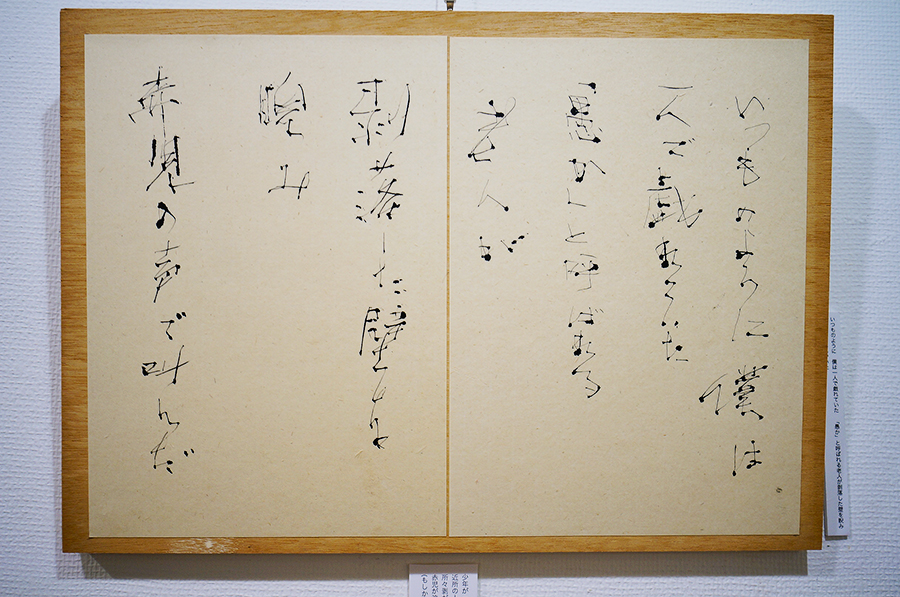 いつものように 僕は
一人で戯れていた
「愚か」と呼ばれる
老人が
剥落した壁を
睨み
赤児の声で叫んだ
いつものように 僕は一人で戯れていた 「愚か」と呼ばれる老人が剥落した壁を睨み
少年が
近所の
所々剥
赤児が
(もしか